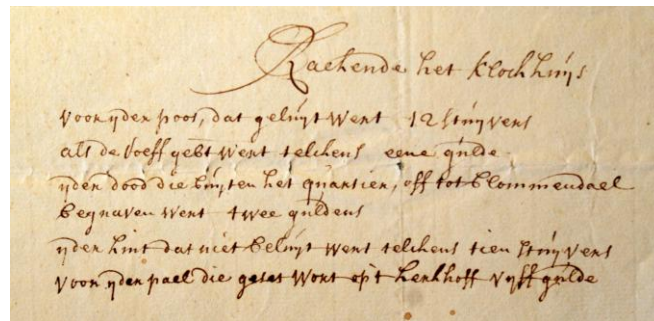 Raekende het klockhuijs
voor ijder poos, dat geluijt wert 12 stuijvers
als de roeff gebt wert telckens eene gulde
ijder dood die buijten het quartier, off tot blommendael
begraven wert twee guldens
ijder kint dat niet beluijt wert telckens tien stuijvers
voor ijder pael die geset wort op't kerkhoff vijff gulde